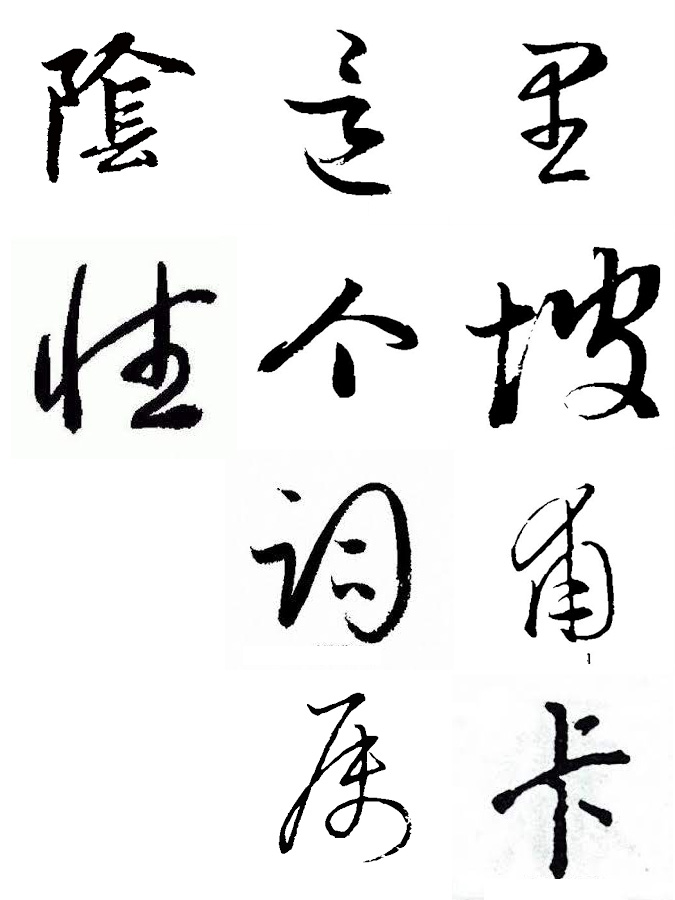 里坡甫卡
这个词属
陰性